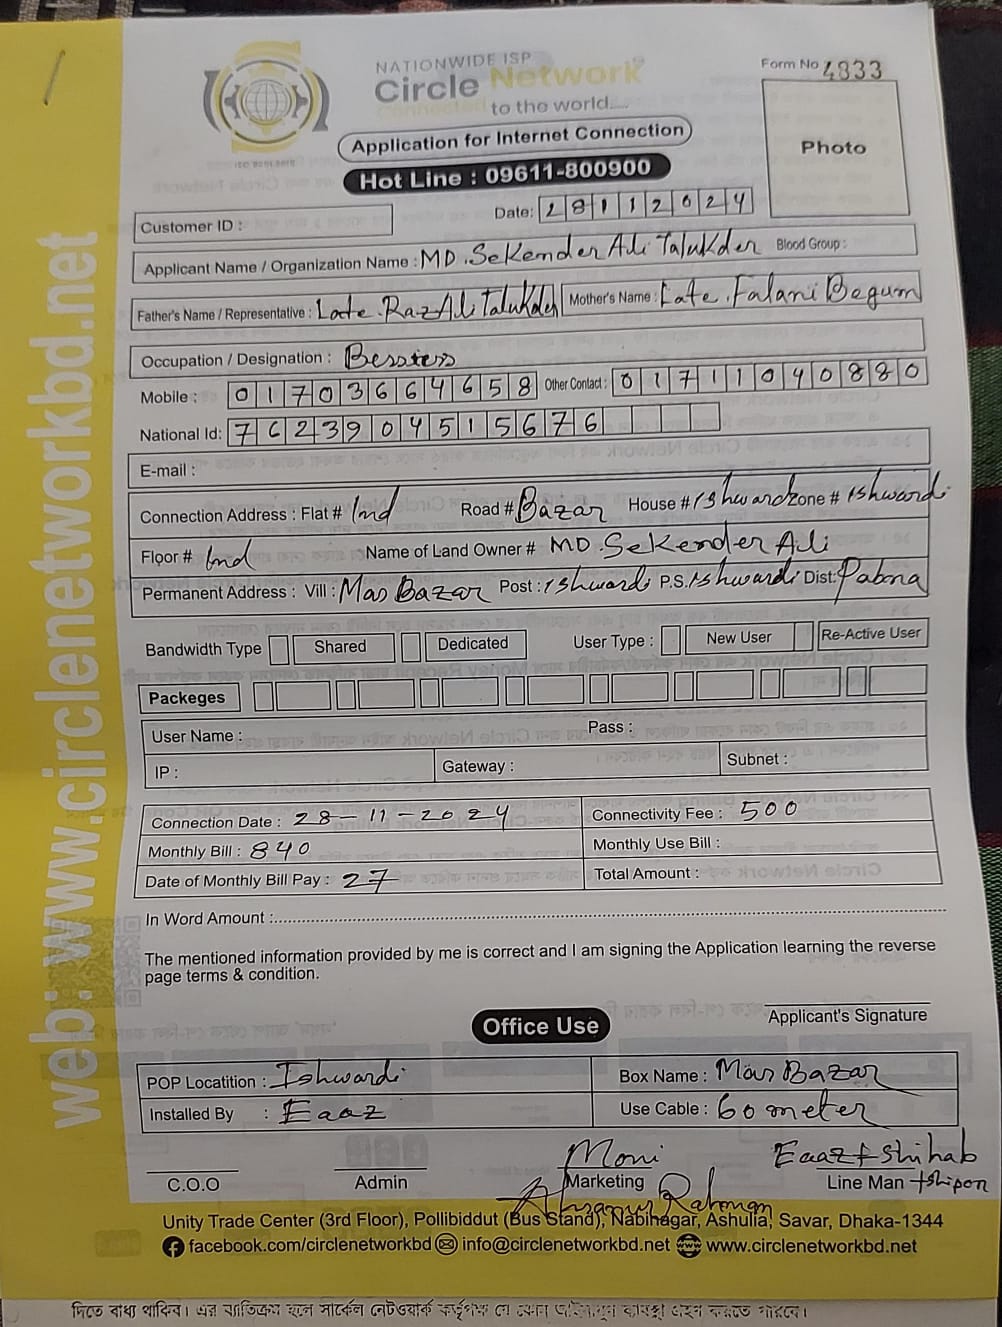 NATIONWIDE ISP
Circle Network
Connected to the world.....
Form No 4833
Application for Internet Connection
Photo
Hot Line : 09611-800900
ISO 9001:2015
Date: 28112024
Customer ID :
Applicant Name / Organization Name : MD. Sekender Ali Talukder Blood Group :
Father's Name / Representative : Late. Raz Ali Talukder Mother's Name : Late. Falani Begum
Occupation / Designation :
Mobile : 01703664658 Other Contact : 01711040880
National Id: 7623904515676
E-mail :
Connection Address : Flat # Ind Road # Bazar House # Ishwardi Zone # Ishwardi
Floor # Ind Name of Land Owner # MD. Sekender Ali
Permanent Address : Vill : Mas Bazar Post : Ishwardi P.S. Ishwardi Dist: Pabna
Bandwidth Type Shared Dedicated User Type : New User Re-Active User
Packeges
User Name : Pass :
IP : Gateway : Subnet :
Connection Date : 28-11-2024 Connectivity Fee : 500
Monthly Bill : 840 Monthly Use Bill :
Date of Monthly Bill Pay : 27 Total Amount :
In Word Amount :
The mentioned information provided by me is correct and I am signing the Application learning the reverse
page terms & condition.
Applicant's Signature
Office Use
POP Locatition : Ishwardi Box Name : Mas Bazar
Installed By : Eaaz Use Cable : 60 meter
Moni Eaaz + Shihab
C.O.O Admin Marketing Line Man + Shipon
Rahman
Unity Trade Center (3rd Floor), Pollibiddut (Bus Stand), Nabinagar, Ashulia, Savar, Dhaka-1344
facebook.com/circlenetworkbd info@circlenetworkbd.net www.circlenetworkbd.net
web: www.circlenetworkbd.net
দিতে বাধ্য থাকিব। এর ব্যতিক্রম হলে সার্কেল নেটওয়ার্ক কর্তৃপক্ষ যে কোন আইনানুগ ব্যবস্থা গ্রহন করতে পারবে।